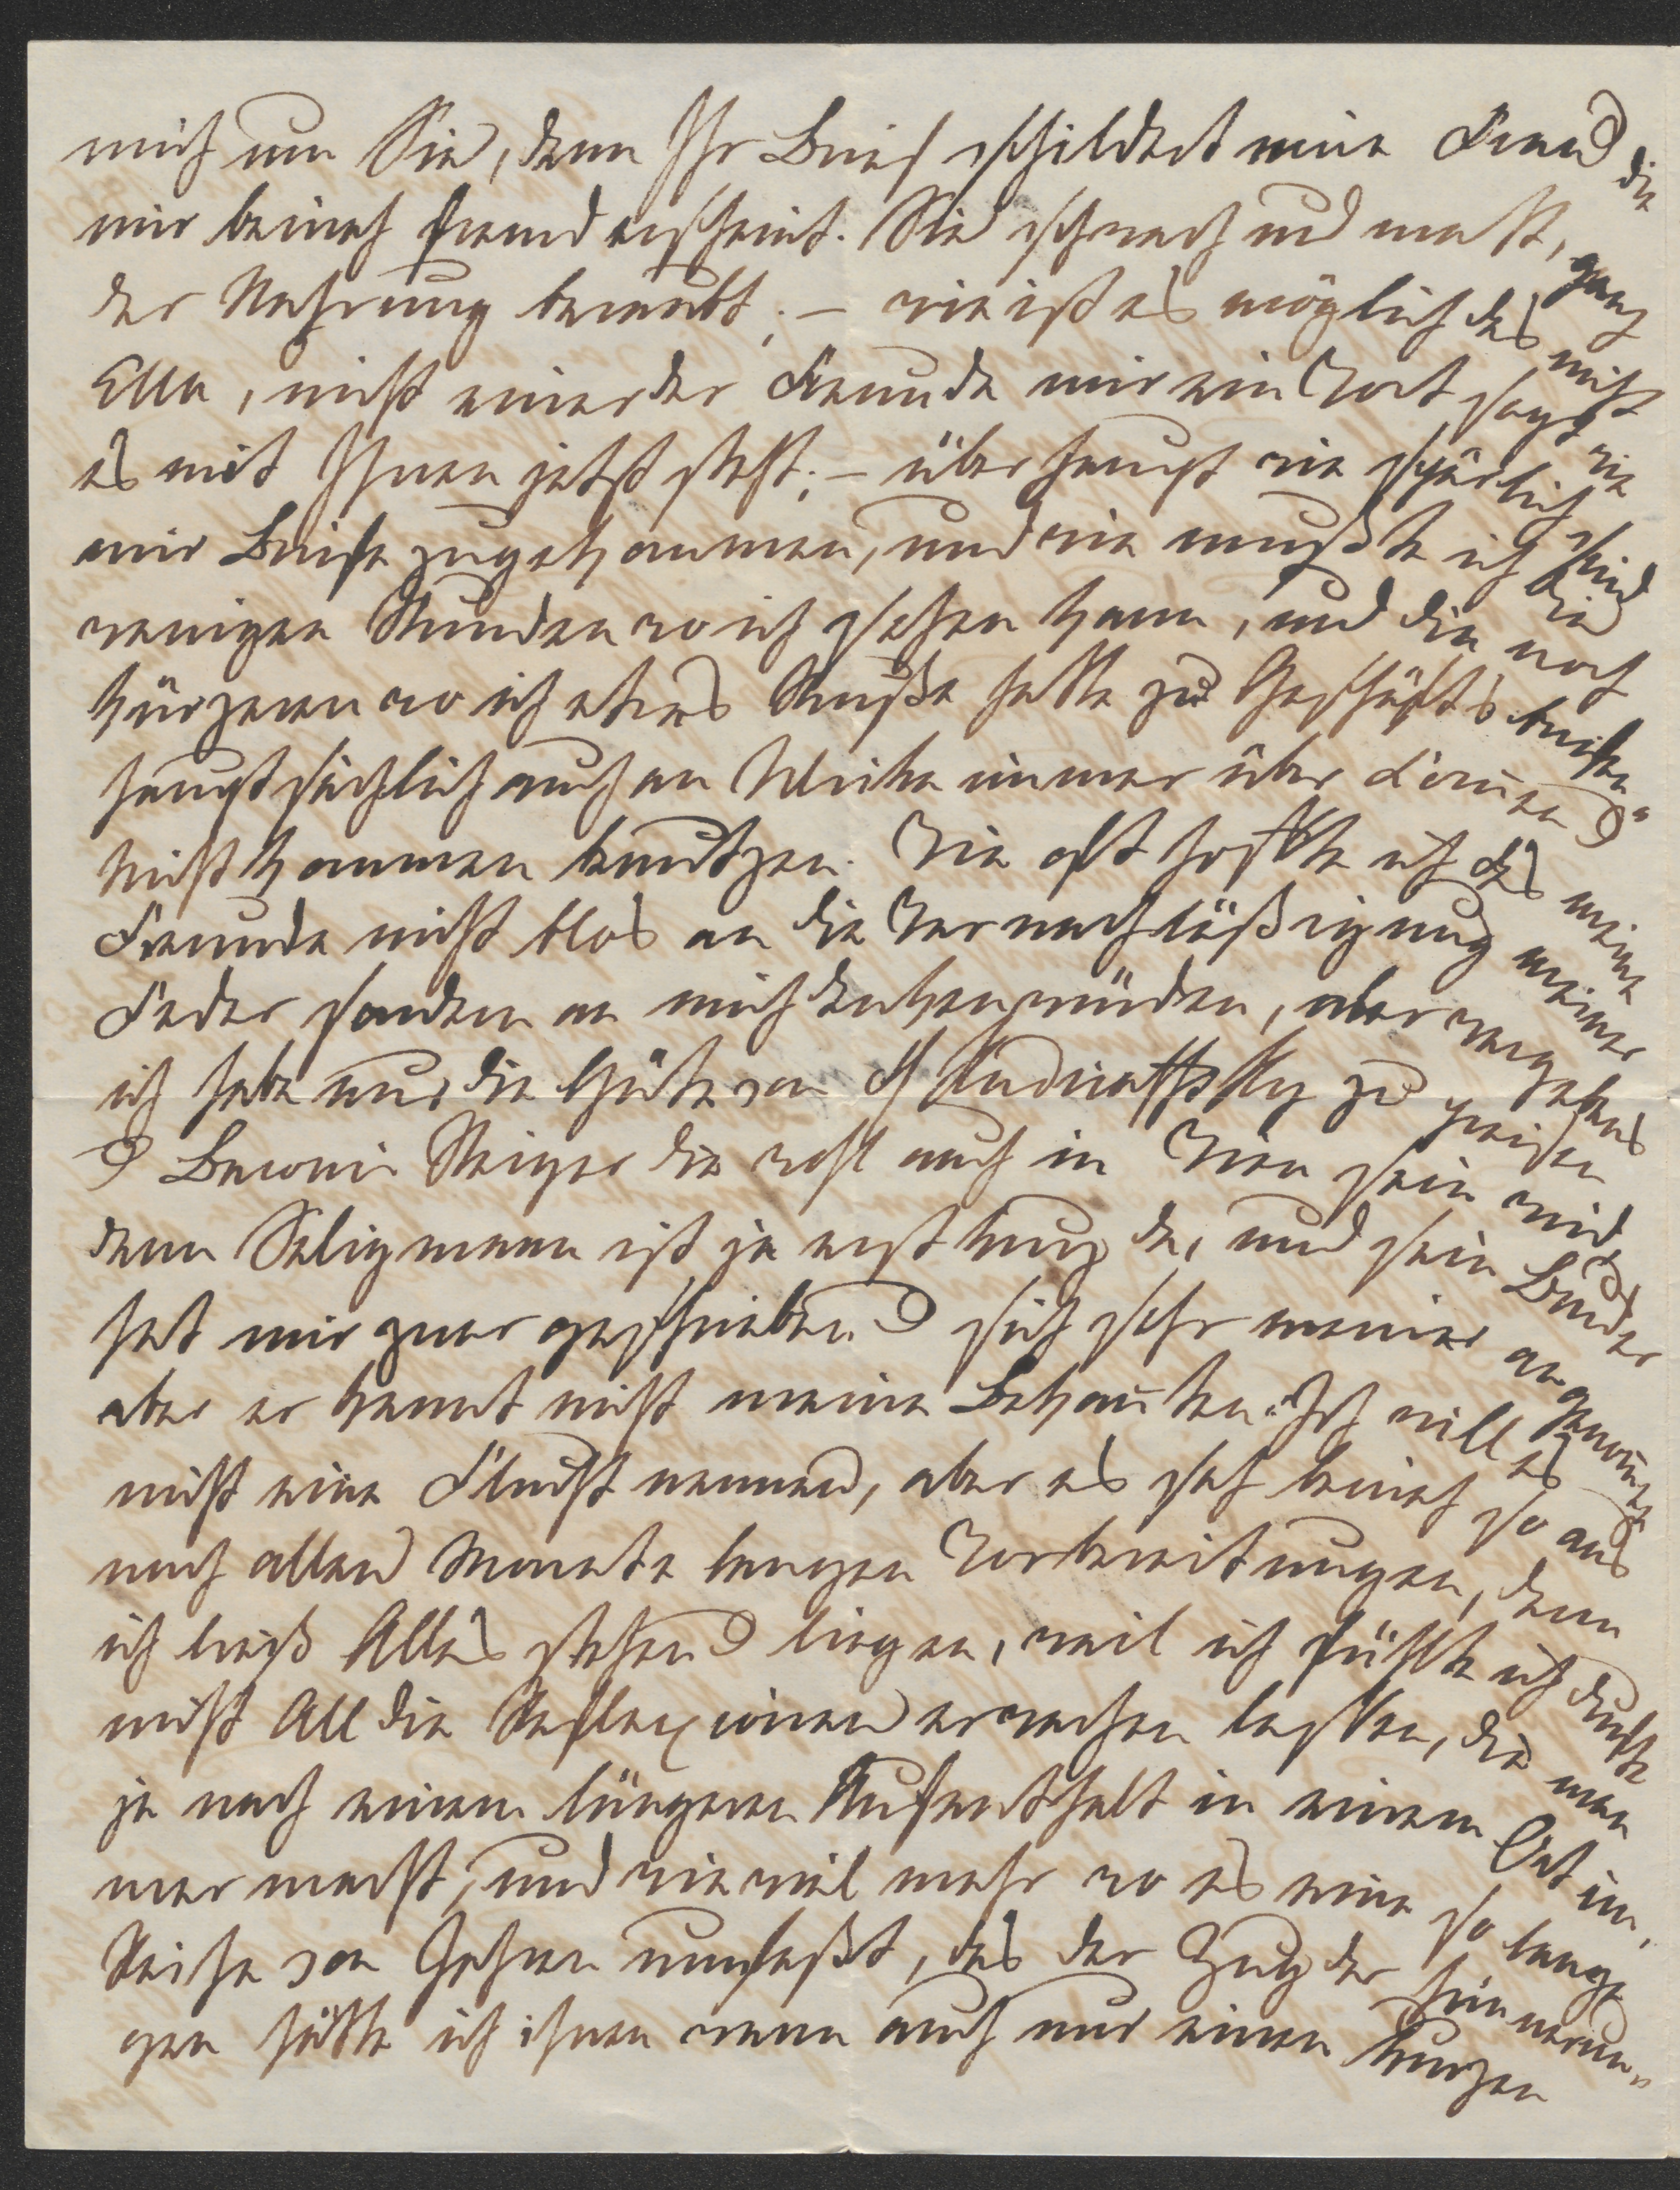 mich um Sie, denn Ihr Brief schildert mir eine Frau die
mir beinah fremd erscheint. Sie schwach und matt, ganz
der Nahrung beraubt; – wie ist es möglich das nicht
Ella, nicht einer der Freunde mir ein Wort sagt wie
es mit Ihnen jetzt steht; – überhaupt wie spärlich sind
mir Briefe zugekommen, und wie mußte ich die
wenigen Stunden wo ich sehen kann, und die noch
kürzeren wo ich etwas Muße hatte zu Geschäftsbriefen
hauptsächlich auch an Ulrike immer über
Nichtkommen benutzen. Wie oft hoffte ich das meine
Freunde nicht blos an die Vernachläßigung meiner
Feder sondern an mich denken würden, aber vergebens
ich habe nur die Güte von zu preisen
& Baronin Steiger die wohl auch in Wien sein wird,
denn Seligmann ist ja erst kurz da, und sein Bruder
hat mir zwar geschrieben & sich sehr meiner angenom̄en
aber er kennt nicht meine Bekan̄ten. Ich will es
nicht eine Flucht nennen, aber es sah beinah so aus
nach allen Monate langen Vorbereitungen, denn
ich ließ Alles stehen & liegen, weil ich fühlte ich durfte
nicht All die Reflexionen erwachen lassen, die man
ja nach einem längeren Aufenthalt in einem Ort im-
mer macht, und wie viel mehr wo es eine so lange
Reihe von Jahren umfaßt, das der Zug der Erinnerun-
gen hätte ich ihnen wenn auch nur einen kurzen